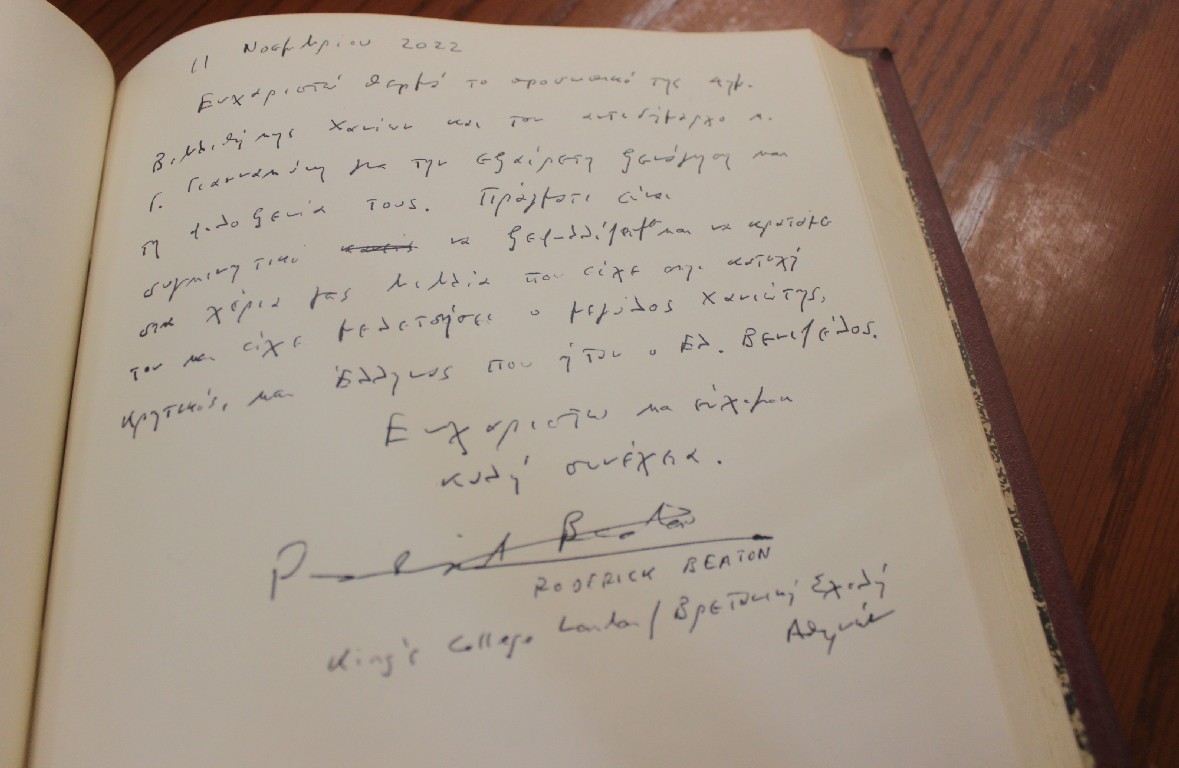 11 Νοεμβρίου 2022
Ευχαριστώ θερμά το προσωπικό της Δημ.
Βιβλιοθήκης Χανίων και τον αντιδήμαρχο κ.
Γ. Γιαννακάκη για την εξαίρετη ξενάγηση και
τη φιλοξενία τους. Πράγματι είναι
συγκινητικό να ξεφυλλίζει και να κρατάμε
στα χέρια μας βιβλία που είχε στην κατοχή
του και είχε μελετήσει ο μεγάλος Χανιώτης,
Κρητικός, και Έλληνας που ήταν ο Ελ. Βενιζέλος.
Ευχαριστώ και εύχομαι
καλή συνέχεια.
RODERICK BEATON
King's College London / Βρετανική Σχολή
Αθηνών